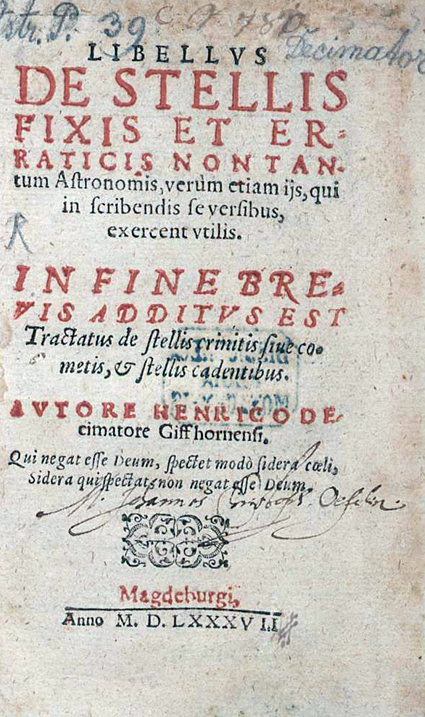 Astr. P. 39
Decimator
LIBELLVS
DE STELLIS
FIXIS ET ER-
RATICIS NON TAN-
tum Astronomis, verùm etiam ijs, qui
in scribendis se versibus,
exercent vtilis.
R
IN FINE BRE-
VIS ADDITVS EST
Tractatus de stellis crinitis siue co-
metis, & stellis cadentibus.
AVTORE HENRICO DE-
cimatore Giffhornensi.
Qui negat esse Deum, spectet modò sidera cœli,
Sidera qui spectat, non negat esse Deum.
M. Johannes
Magdeburgi,
Anno M. D. LXXXVII